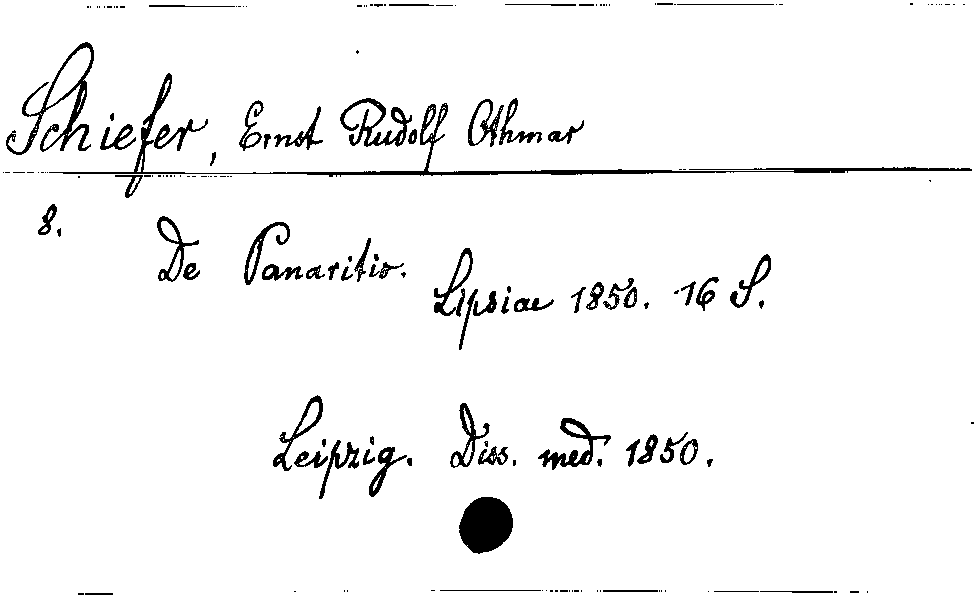 Schiefer, Ernst Rudolf Othmar
8.
De Panaritio.
Lipsiae 1850. 16 S.
Leipzig. Diss. med. 1850.